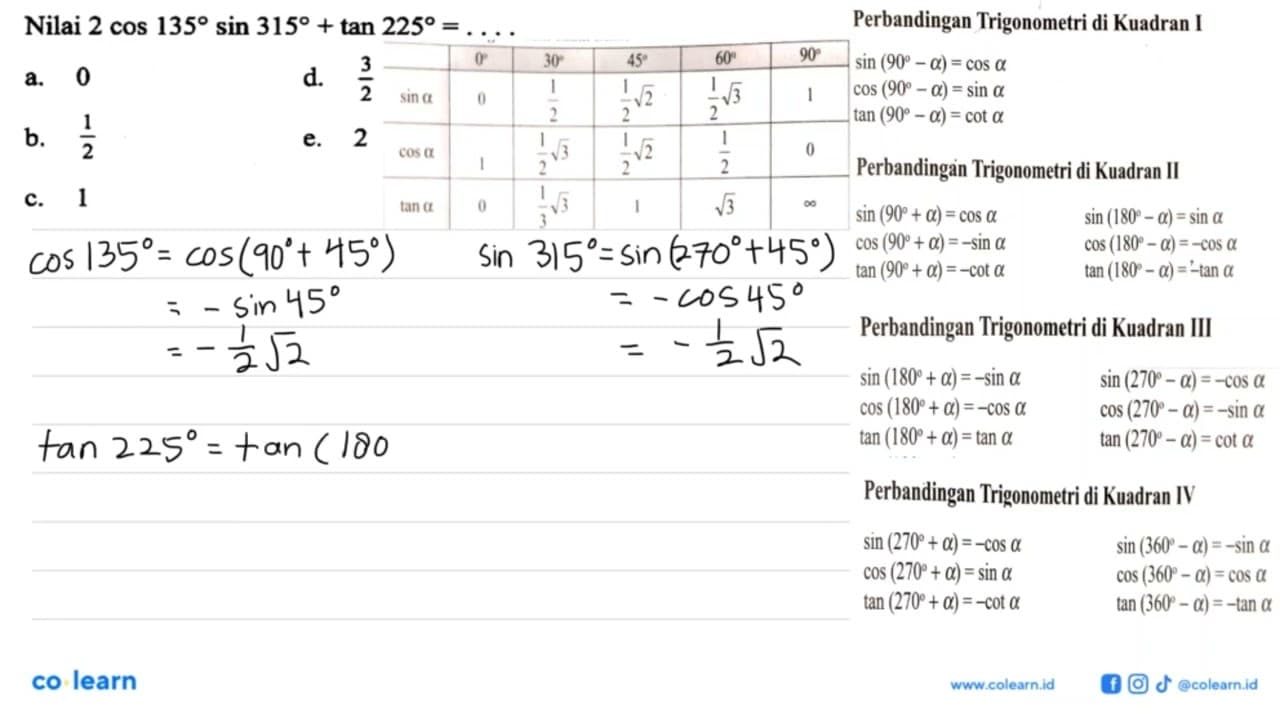 Nilai 2 cos 135° sin 315° + tan 225° = . . . .
a. 0
b. 1/2
c. 1
d. 3/2
e. 2
0° 30° 45° 60° 90°
sin α 0 1/2 1/2√2 1/2√3 1
cos α 1 1/2√3 1/2√2 1/2 0
tan α 0 1/3√3 1 √3 ∞
cos 135° = cos(90° + 45°)
= - sin 45°
= - 1/2 √2
sin 315° = sin (270° + 45°)
= - cos 45°
= - 1/2 √2
tan 225° = tan (180
Perbandingan Trigonometri di Kuadran I
sin (90° – α) = cos α
cos (90° – α) = sin α
tan (90° – α) = cot α
Perbandingan Trigonometri di Kuadran II
sin (90° + α) = cos α sin (180° – α) = sin α
cos (90° + α) = –sin α cos (180° – α) = –cos α
tan (90° + α) = –cot α tan (180° – α) = –tan α
Perbandingan Trigonometri di Kuadran III
sin (180° + α) = –sin α sin (270° – α) = –cos α
cos (180° + α) = –cos α cos (270° – α) = –sin α
tan (180° + α) = tan α tan (270° – α) = cot α
Perbandingan Trigonometri di Kuadran IV
sin (270° + α) = –cos α sin (360° – α) = –sin α
cos (270° + α) = sin α cos (360° – α) = cos α
tan (270° + α) = –cot α tan (360° – α) = –tan α
co learn
www.colearn.id @colearn.id